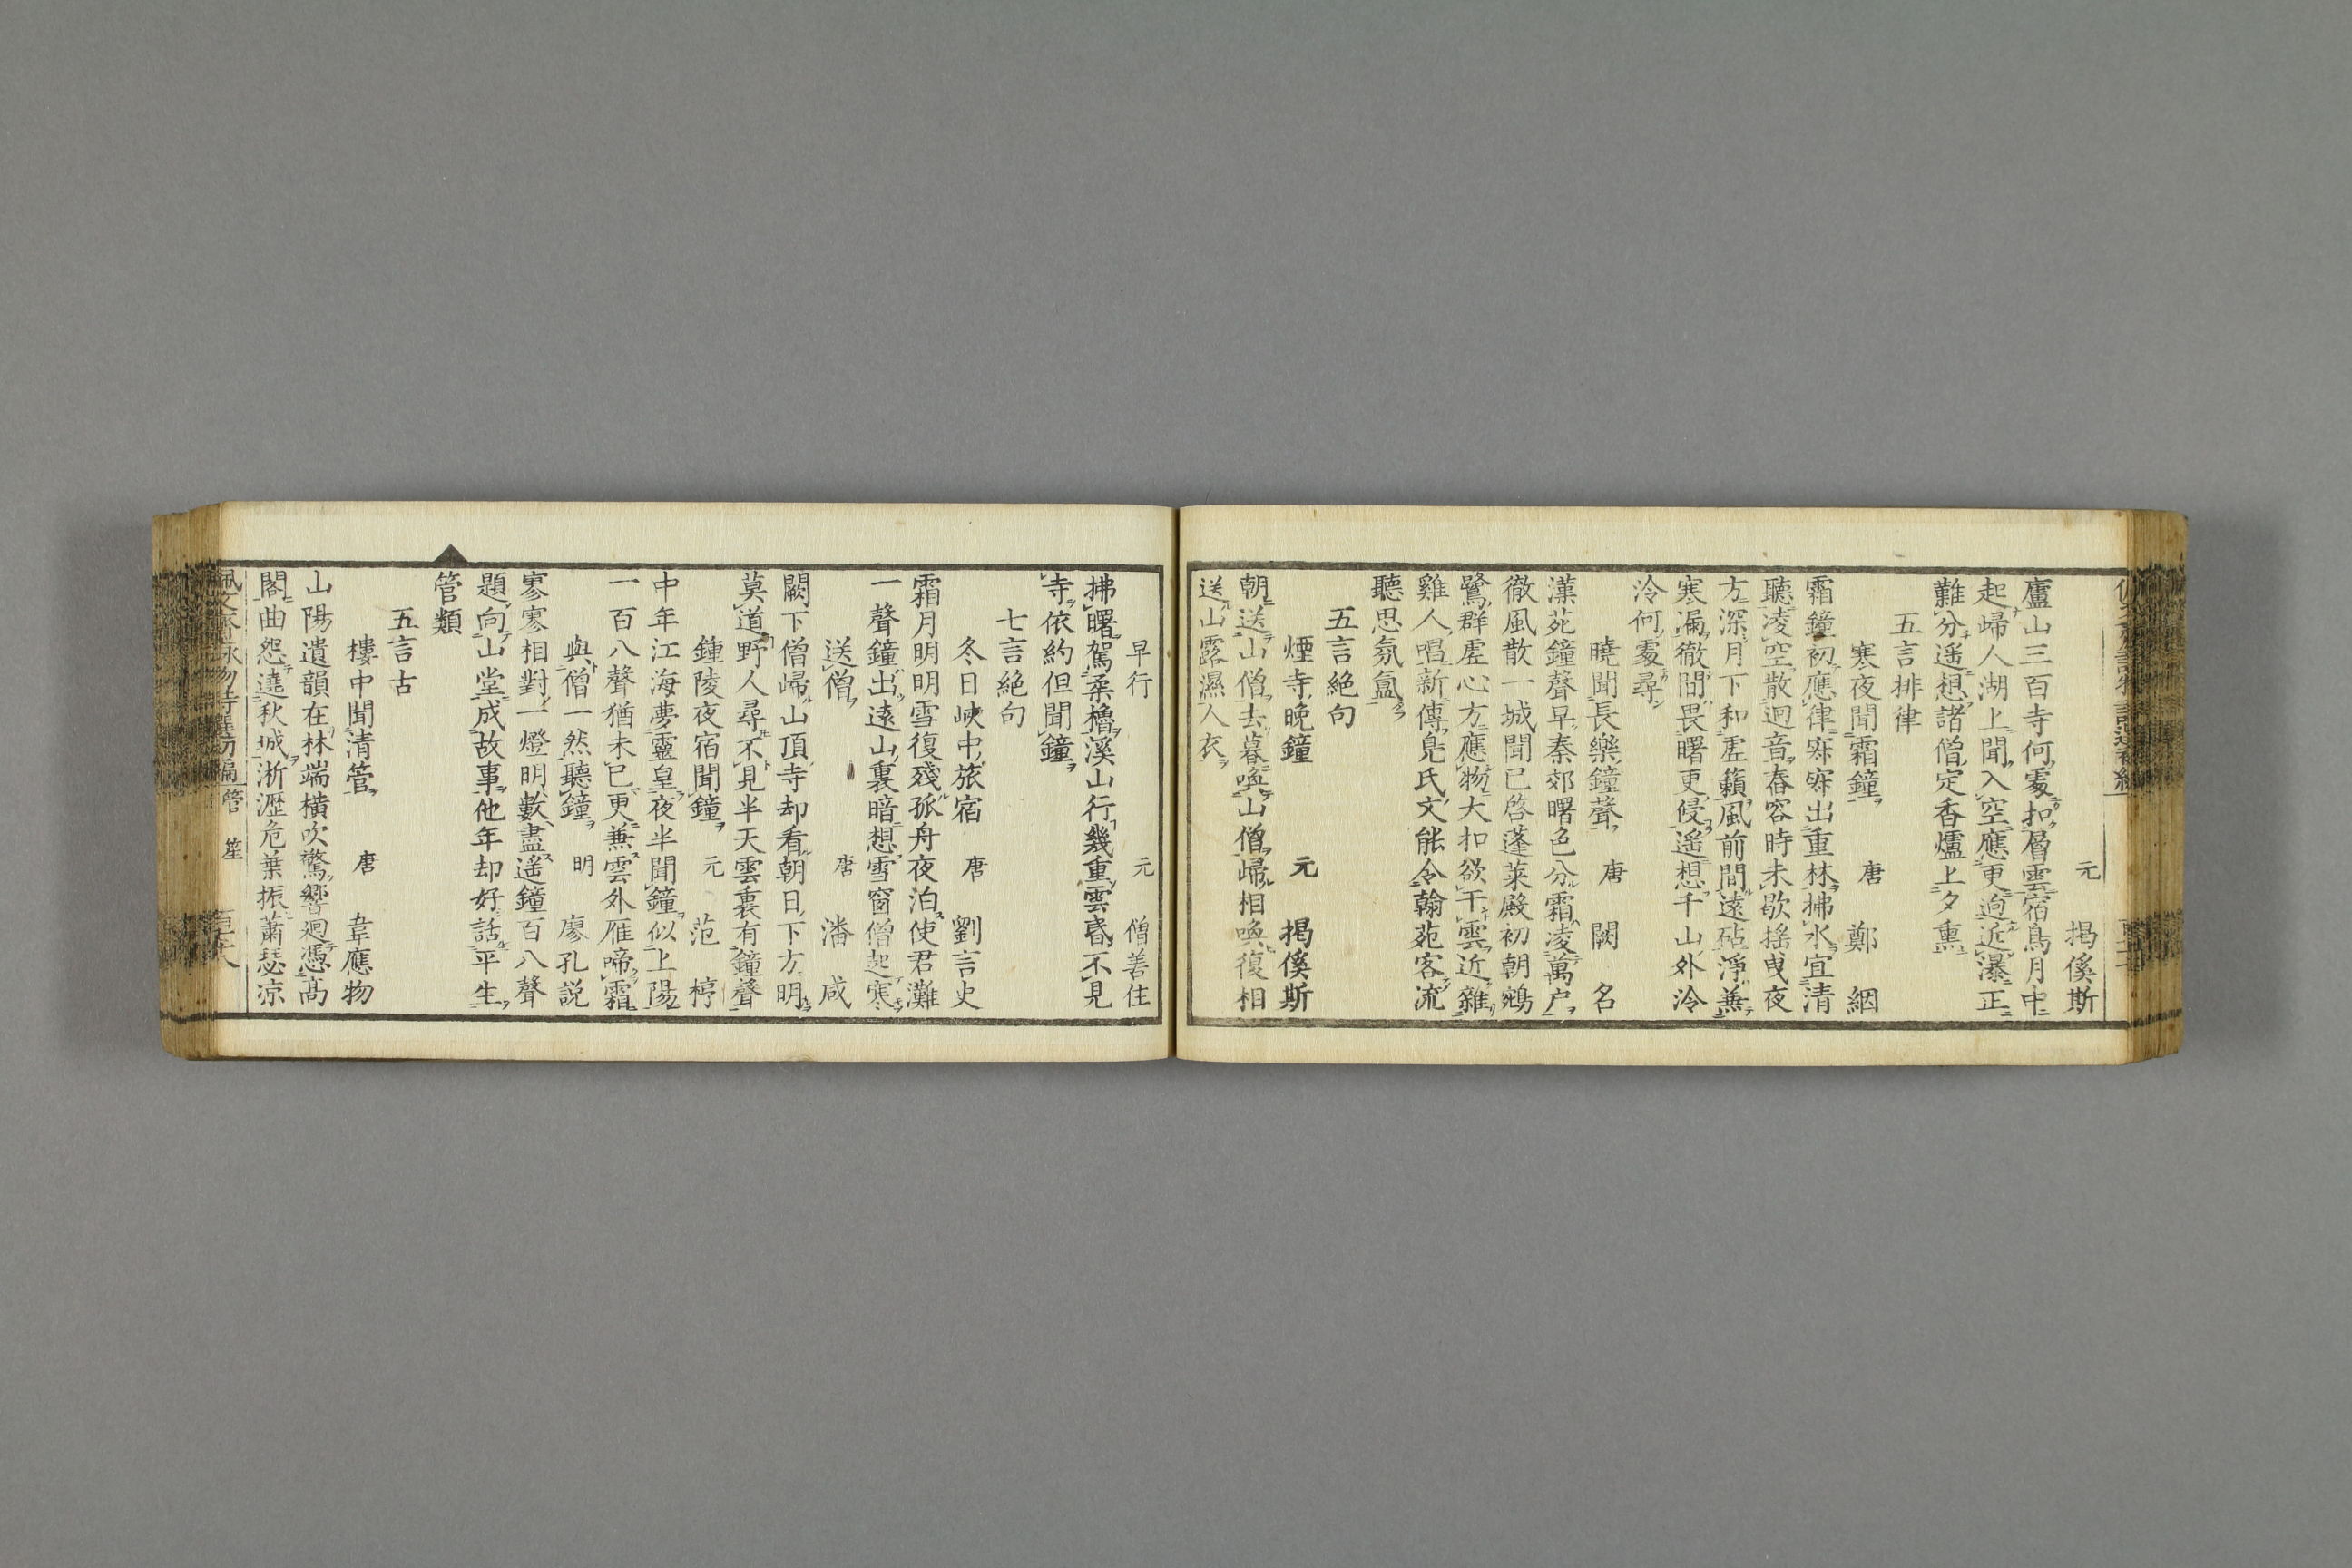 元 揭傒斯
廬山三百寺何處扣層雲宿鳥月中
起歸人湖上聞入空應更迥近瀑正
難分遥想諸僧定香爐上夕熏
五言排律
寒夜聞霜鐘 唐 鄭絪
霜鐘初應律寂寂出重林拂水宜清
聽凌空散迥音舂容時未歇搖曳夜
方深月下和虛籟風前間遠砧淨兼
寒漏徹閒畏曙更侵遥想千山外泠
泠何處尋
曉聞長樂鐘聲 唐 闕名
漢苑鐘聲早秦郊曙色分霜凌萬户
徹風散一城聞已啓蓬萊殿初朝鵷
鷺群虛心方應物大扣欲干雲近雜
雞人唱新傳鳧氏文能令翰苑客流
聽思氛氳
五言絶句
煙寺晚鐘 元 揭傒斯
朝送山僧去暮喚山僧歸相喚復相
送山露濕人衣
早行 元 僧善住
拂曙駕柔櫓溪山行幾重雲昏不見
寺依約但聞鐘
七言絶句
冬日峽中旅宿 唐 劉言史
霜月明明雪復殘孤舟夜泊使君灘
一聲鐘出遠山裏暗想雪窗僧起寒
送僧 唐 潘咸
闕下僧歸山頂寺却看朝日下方明
莫道野人尋不見半天雲裏有鐘聲
鍾陵夜宿聞鐘 元 范梈
中年江海夢靈皇夜半聞鐘似上陽
一百八聲猶未已更兼雲外雁啼霜
與僧一然聽鐘 明 廖孔説
寥寥相對一燈明數盡遥鐘百八聲
題向山堂成故事他年却好話平生
管類
五言古
樓中聞清管 唐 韋應物
山陽遺韻在林端横吹驚響迥憑高
閣曲怨遶秋城淅瀝危葉振蕭瑟凉
佩文齋詠物詩選初編 管 笙